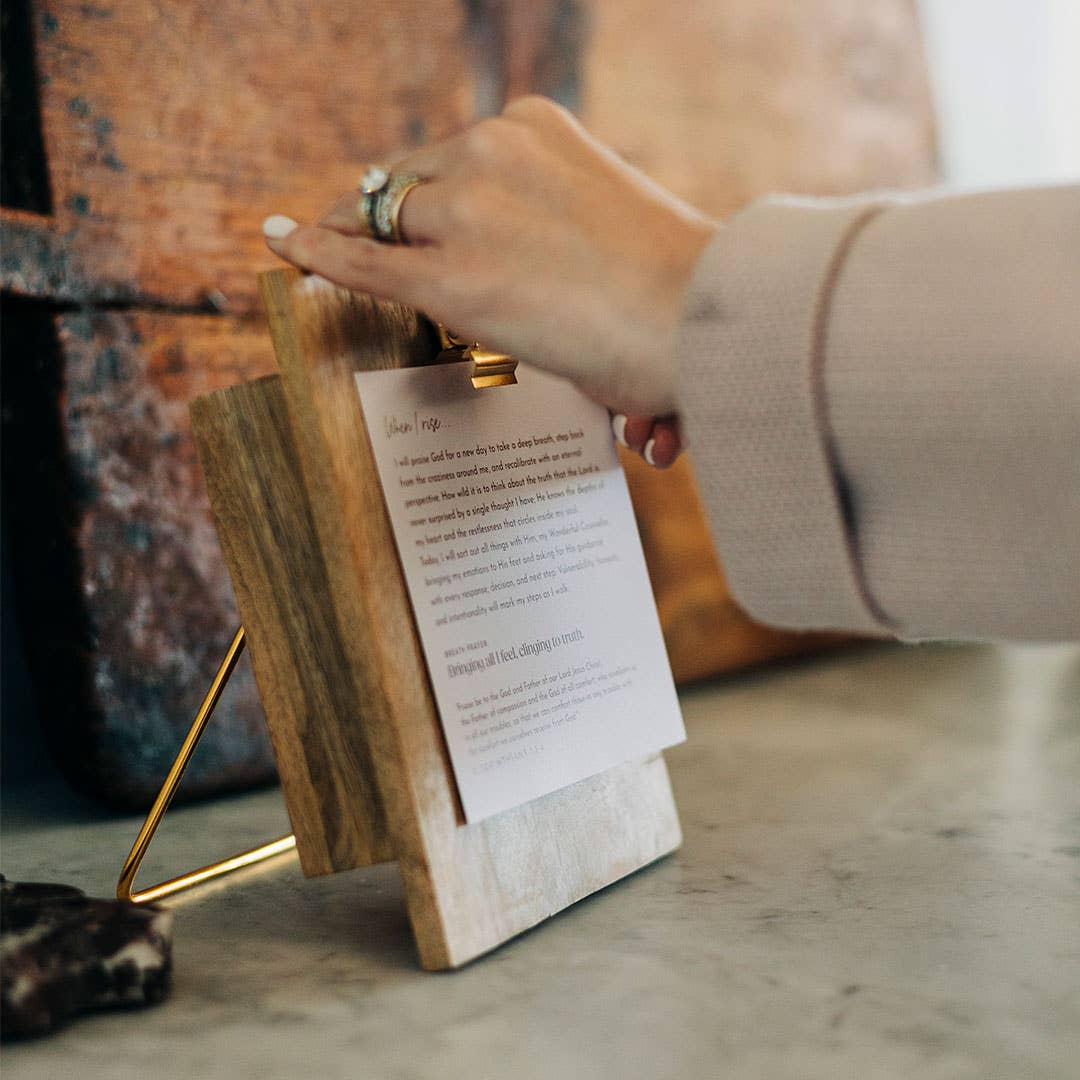 When I rise...
I will praise God for a new day to take a deep breath, step back
from the craziness around me, and recalibrate with an eternal
perspective. How wild it is to think about the truth that the Lord is
never surprised by a single thought I have. He knows the depths of
my heart and the restlessness that circles inside my soul.
Today, I will sort out all things with Him, my Wonderful Counselor,
bringing my emotions to His feet and asking for His guidance
with every response, decision, and next step. Vulnerability, honesty,
and intentionality will mark my steps as I walk.
BREATH PRAYER
Bringing all I feel, clinging to truth.
"Praise be to the God and Father of our Lord Jesus Christ,
the Father of compassion and the God of all comfort, who comforts us
in all our troubles, so that we can comfort those in any trouble with
the comfort we ourselves receive from God."